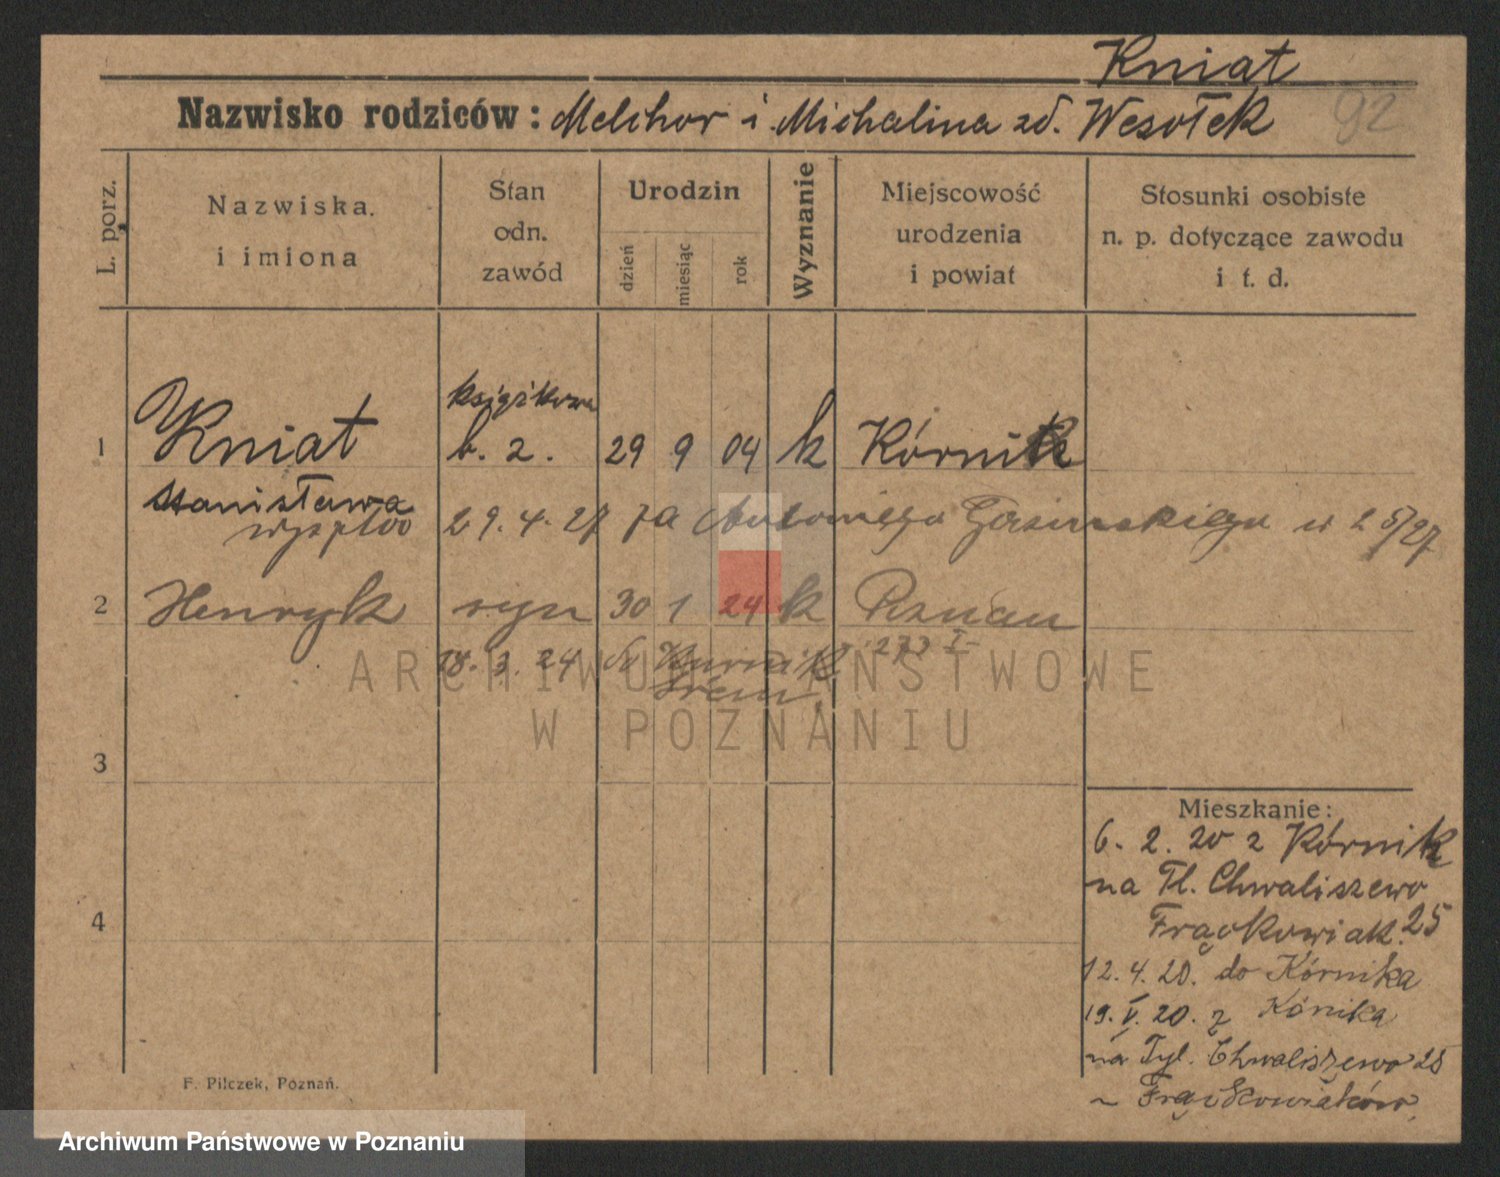 Kniat
Nazwisko rodziców: Melchor i Michalina zd. Wesołek 92
L. porz.
Nazwiska i imiona
Stan odn. zawód
Urodzin
dzień miesiąc rok
Wyznanie
Miejscowość urodzenia i powiat
Stosunki osobiste n. p. dotyczące zawodu i t. d.
książkowa
1 Kniat b. z. 29 9 04 k Kórnik
Stanisława
29.4.27 za Antoniego w 2 5/27
2 Henryk syn 30 1 24 k Poznań
18. 3. 24 do Kurnik
Śrem
3
4
Mieszkanie:
6. 2. 20 z Kórnik
na Tl. Chwaliszewo
Frąckowiak. 25
12. 4. 20. do Kórnika
19. V. 20. z Kónika
na Tyl. Chwaliszewo 25
Frąckowiaków
F. Pilczek, Poznań.
ARCHIWUM PAŃSTWOWE
W POZNANIU
Archiwum Państwowe w Poznaniu